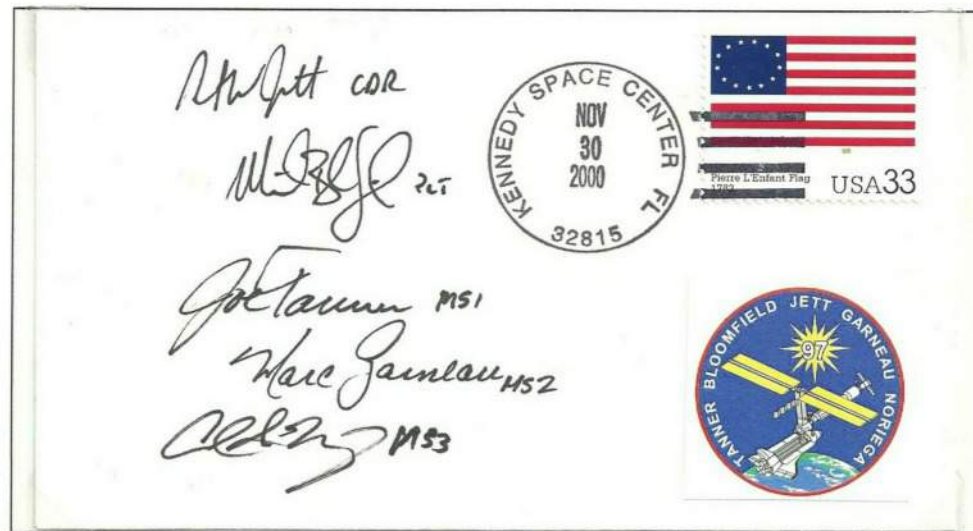 CDR
PLT
Joe Tanner MS1
Marc Garneau MS2
MS3
KENNEDY SPACE CENTER FL
NOV
30
2000
32815
Pierre L'Enfant Flag
1783
USA33
TANNER BLOOMFIELD JETT GARNEAU NORIEGA
97